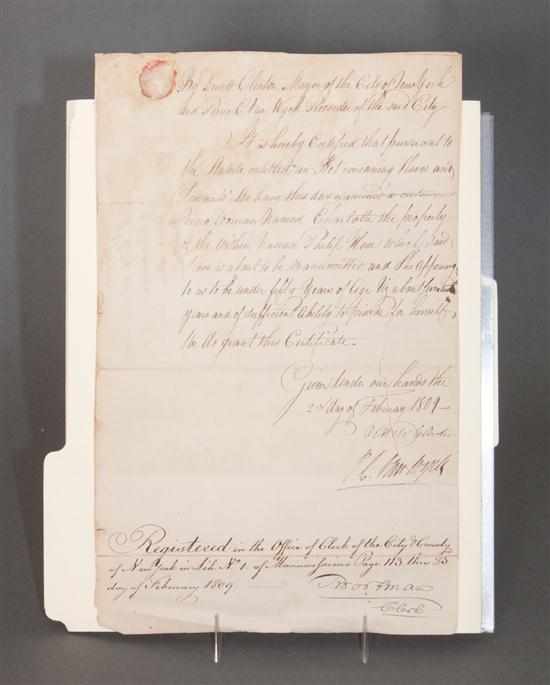 By Dewitt Clinton Mayor of the City of New York
and Pierre C Van Wyck Recorder of the said City
It is hereby Certified that pursuant to
the Statute entitled "an Act concerning Slaves and
Servants" We have this day examined a certain
Negro Woman Named Charlotte the property
of the within Named Philip Hone which said
Slave is about to be manumitted and She appearing
to us to be under fifty Years of Age Viz about
years and of sufficient Ability to provide for herself
We do grant this Certificate.
Given Under our hands this
2nd day of February 1809
DeWitt Clinton
P. C. Van Wyck
Registered in the Office of Clerk of the City & County
of New York in Lib No. 1. of Manumissions Page 113 this 25
day of February 1809
Clerk